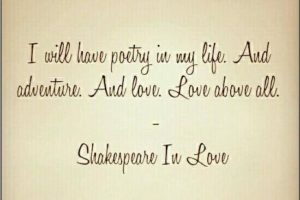 I will have poetry in my life. And
adventure. And love. Love above all.
-
Shakespeare In Love